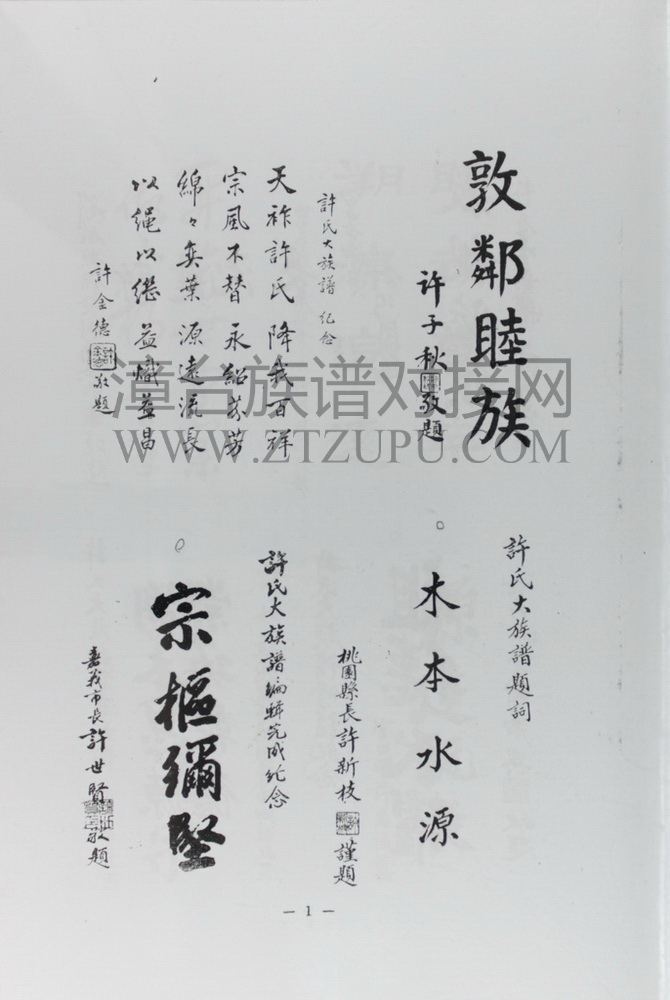 敦鄰睦族
许子秋
敬題
許氏大族譜 紀念
天祚許氏 降我百祥
宗風不替 永紹芬芳
綿々奕葉 源遠流長
以繩以繼 益熾益昌
許金德
敬題
許氏大族譜題詞
木本水源
桃園縣長許新枝
謹題
許氏大族譜編輯完成紀念
宗樞彌堅
嘉義市長許世賢
敬題
漳台族谱对接网
WWW.ZTZUPU.COM
— 1 —